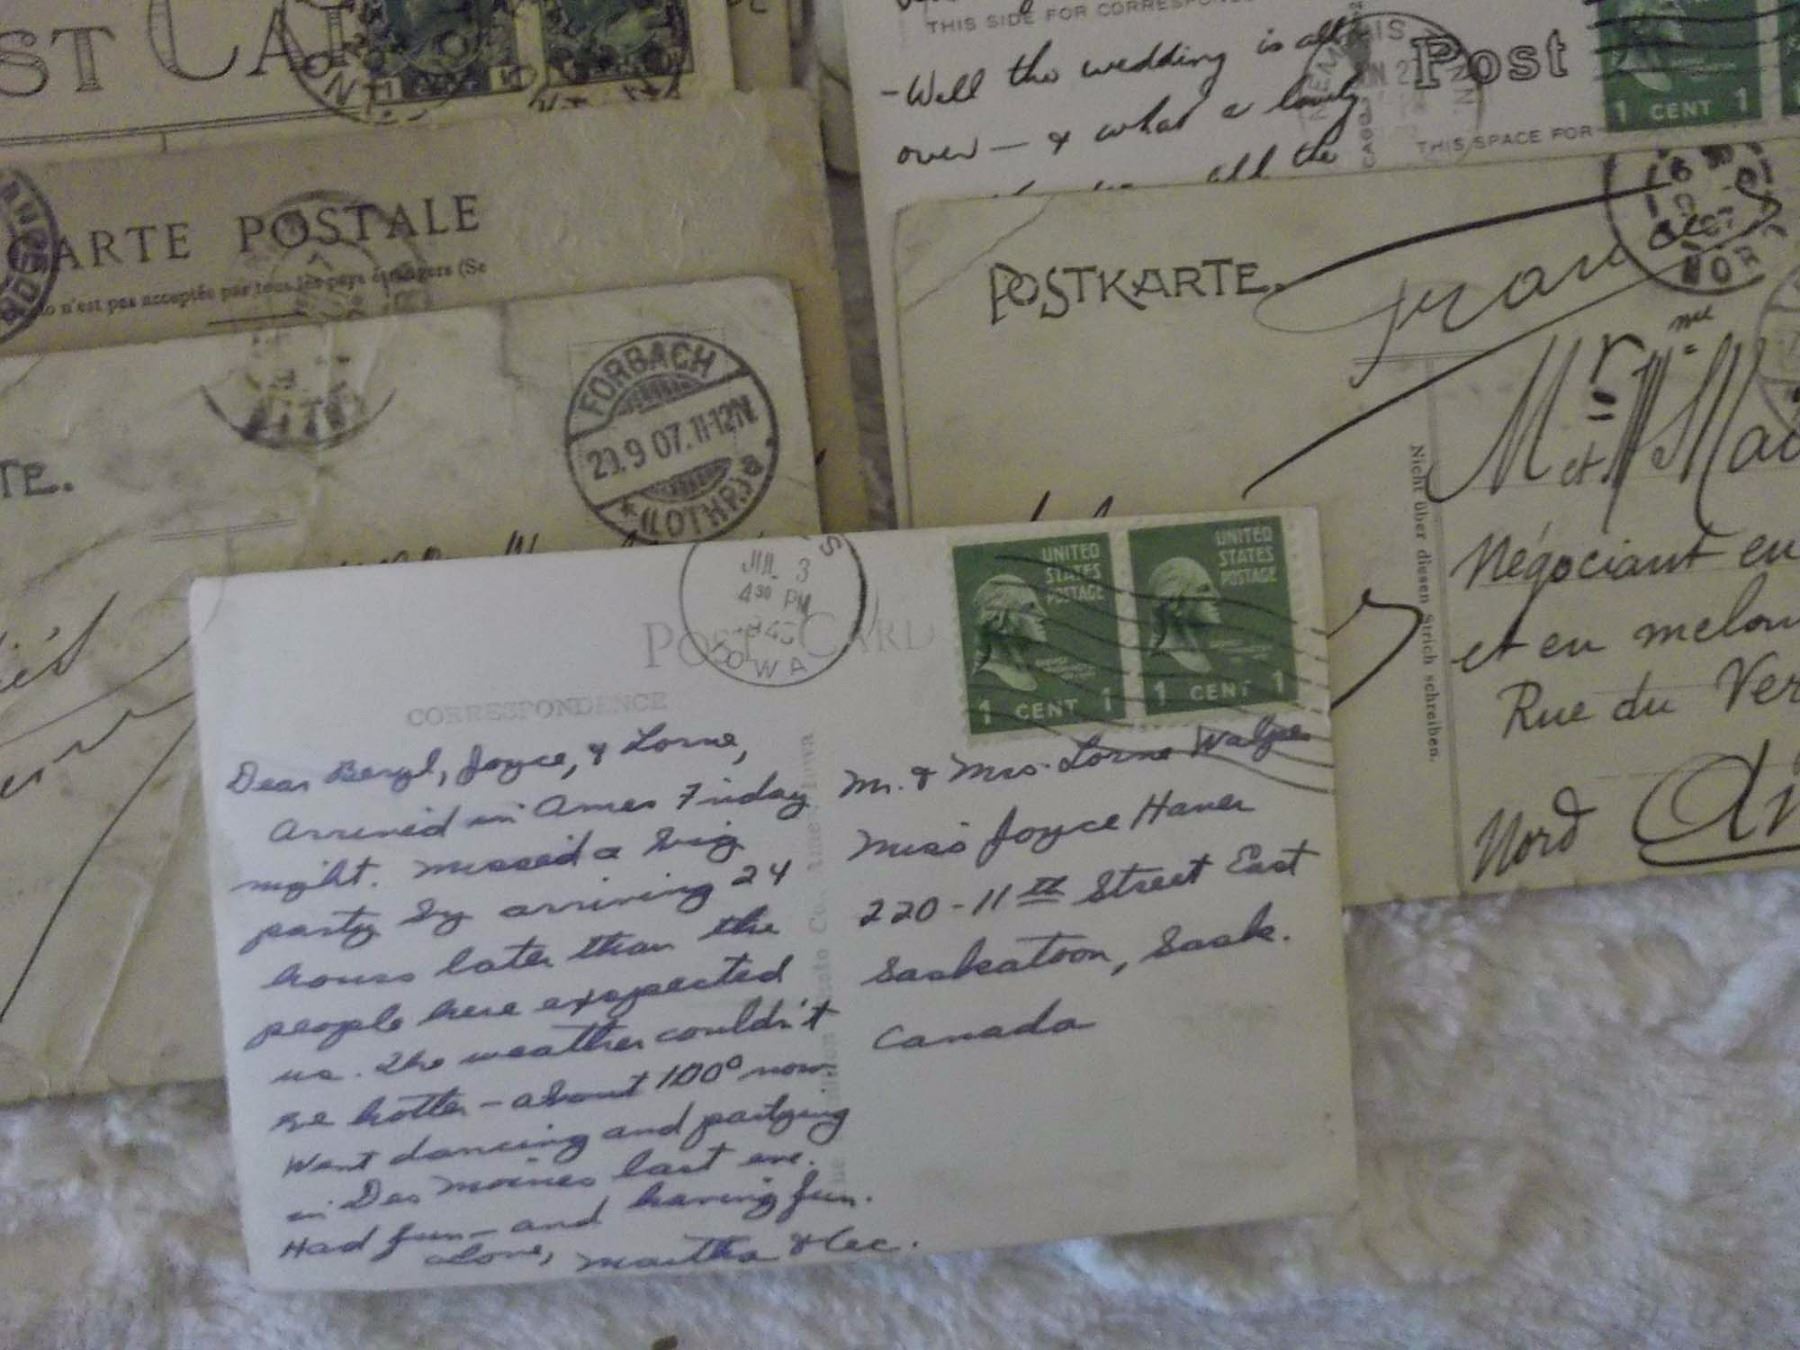 ST CA
CARTE POSTALE
n'est pas accepté par tous les pays étrangers (Se
TE.
FORBACH
29.9 07.11-12N.
(LOTHR.)
THIS SIDE FOR CORRESPOND
-Well the wedding is all
over - & what a lovely
all the
Post
1 CENT 1
THIS SPACE FOR
POSTKARTE.
Mr et Mme
Négociant en
et en melon
Rue du Ver
Nord
Nicht über diesen Strich schreiben.
POST CARD
CORRESPONDENCE
JUL 3
4 30 PM
IOWA
UNITED
STATES
POSTAGE
1 CENT 1
UNITED
STATES
POSTAGE
1 CENT 1
Dear Beryl, Joyce, & Lorne,
Arrived in Ames Friday
night. Missed a big
party by arriving 24
hours later than the
people here exspected
us. The weather couldn't
be hotter - about 100° now.
Went dancing and partying
in Des Moines last eve.
Had fun - and having fun.
Love, Martha & Cec.
Mr. & Mrs. Lorne
Miss Joyce Haner
220-11th Street East
Saskatoon, Sask.
Canada